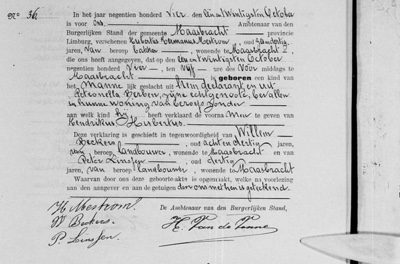 No. 36.
In het jaar negentien honderd Vier den Een en twintigsten October
voor ons, Ambtenaar van den
Burgerlijken Stand der gemeente Maasbracht, provincie
Limburg, verscheen Hermanus Mestrom, oud
jaren, van beroep Bakker, wonende te Maasbracht
die ons heeft aangegeven, dat op den Een en twintigsten October
negentien honderd Vier, des ure Voor middags
te Maasbracht is geboren een kind van
het Manne lijk geslacht uit
Petronella zijne echtgenoote, bevallen
in hunne woning van
aan welk kind hij heeft verklaard de voorna Men te geven van
Hendrikus Hubertus.
Deze verklaring is geschied in tegenwoordigheid van Willem
Beckers, oud acht en dertig
jaren, van beroep Landbouwer, wonende te Maasbracht en van
Peter Linssen, oud dertig
jaren, van beroep Landbouwer, wonende te Maasbracht
Waarvan door ons deze geboorte-akte is opgemaakt, welke na voorlezing
aan den aangever en aan de getuigen door ons met hen is geteekend.
H Mestrom. De Ambtenaar van den Burgerlijken Stand,
W Beckers
P. Linssen H. Van de Venne